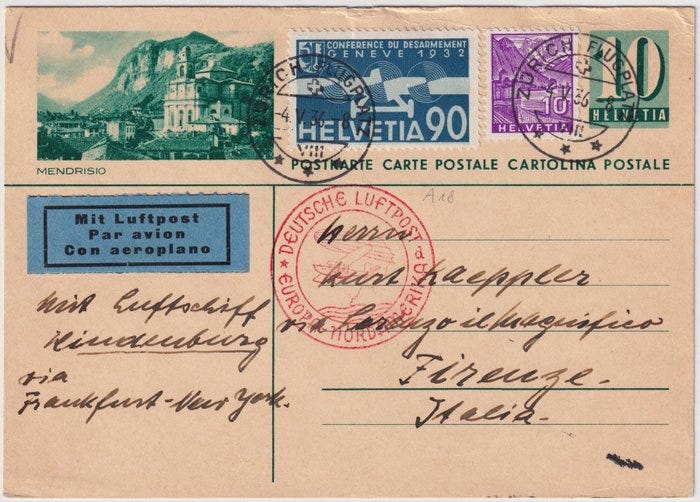 MENDRISIO
CONFÉRENCE DU DÉSARMEMENT
GENÈVE 1932
HELVETIA 90
10
HELVETIA
10
HELVETIA
ZÜRICH FLUGPLATZ
-4.V.36.-8
VIII
ZÜRICH FLUGPLATZ
-4.V.36.-8
VIII
POSTKARTE CARTE POSTALE CARTOLINA POSTALE
Mit Luftpost
Par avion
Con aeroplano
A18
DEUTSCHE LUFTPOST
EUROPA NORDAMERIKA
Herrn
Kurt Kaeppler
via Lorenzo il Magnifico
Firenze.
Italia.
Mit Luftschiff
Hindenburg
via
Frankfurt-New York.